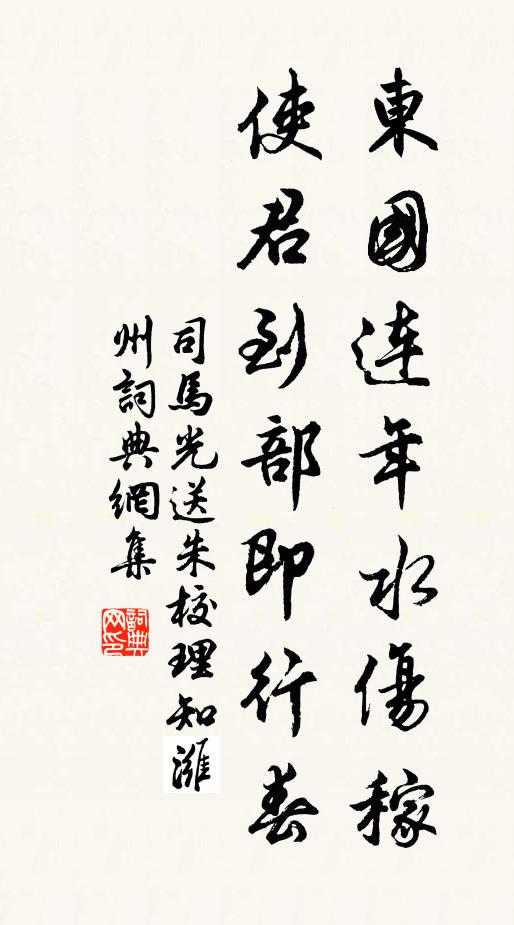 東國連年水傷稼
使君到部即行春
司馬光送朱校理知濰
州詞典網集
詞典網印